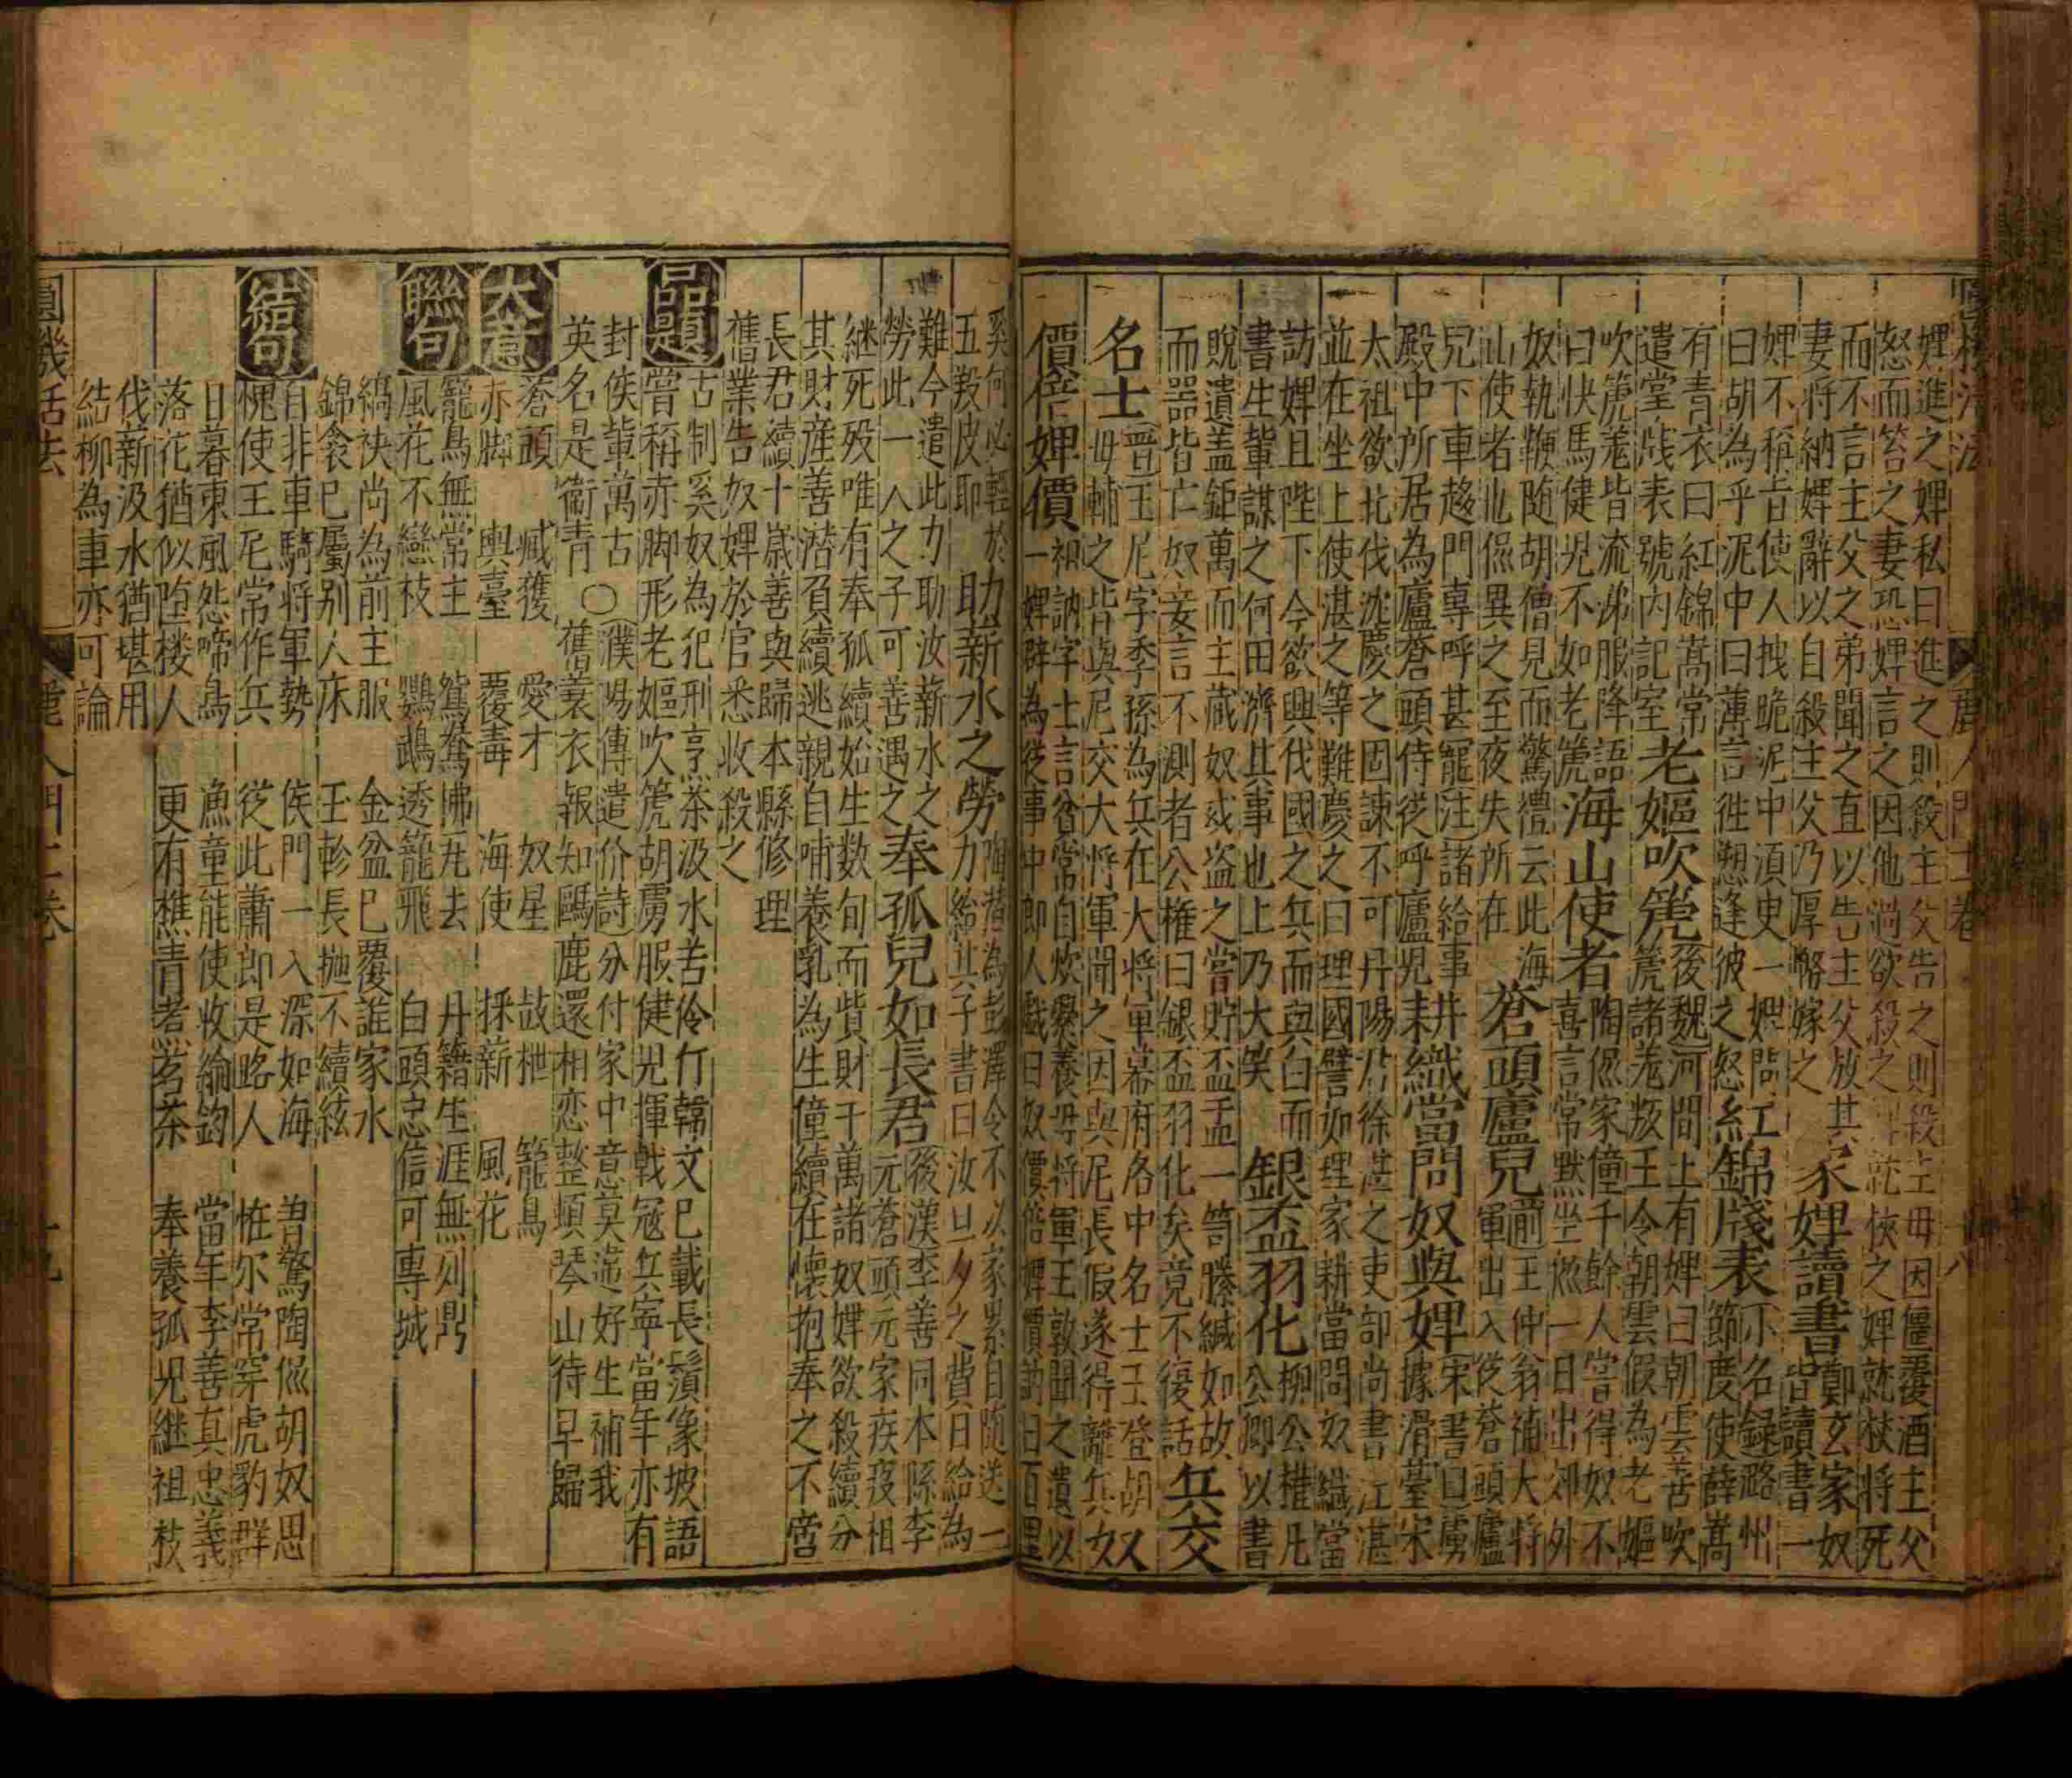 圓機活法 麗人門十二卷 十八
婢進之婢私曰進之則殺主父告之則殺主母因僵覆酒主父
怒而笞之妻恐婢言之因他過欲殺之婢就杖將死
而不言主父之弟聞之直以告主父放其
妻將納婢辭以自殺主父乃厚幣嫁之
家婢讀書 鄭玄家奴
皆讀書一
婢不稱旨使人拽跪泥中須臾一婢問
曰胡為乎泥中曰薄言徃愬逢彼之怒
紅錦牋表 不名録潞州
節度使薛嵩
有青衣曰紅錦嵩常
遣堂牋表號內記室
老嫗吹篪 後魏河間王有婢曰朝雲善吹
篪諸羗叛王令朝雲假為老嫗
吹篪羗皆流涕服降語
曰快馬健児不如老篪
海山使者 陶侃家僮千餘人嘗得奴不
喜言常默坐侃一日出郊外
奴執鞭随胡僧見而驚禮云此海
山使者也侃異之至夜失所在
蒼頭廬兒 前王仲翁補大將
軍出入從蒼頭廬
兒下車趍門專呼甚寵注諸給事
殿中所居為廬蒼頭侍從呼廬児
耕織當問奴與婢 宋書曰虜
據滑臺宋
太祖欲北伐沈慶之固諫不可丹陽尹徐湛之吏部尚書江湛
並在坐上使湛之等難慶之曰理國譬如理家耕當問奴織當
訪婢且陛下今欲興伐國之兵而與白面
書生輩謀之何田濟其事也上乃大笑
銀盃羽化 柳公權凡
公卿以書
貺遺盖鉅萬而主藏奴或盗之嘗貯盃盂一笥縢緘如故
而噐皆亡奴妄言不測者公權曰銀盃羽化矣竟不復話
兵交
名士 晉王尼字季孫為兵在大將軍幕府洛中名士王登胡
毋輔之皆與尼交大將軍聞之因與尼長假遂得離兵
奴
價倍婢價 祖訥字士言常自炊爨養母將軍王敦聞之遺以
一婢辟為從事中郎人戲曰奴價倍婢價訥曰百里
奚何必輕於
五羖皮耶
助薪水之勞 陶潜為彭澤令不以家累自随送一
力給其子書曰汝旦夕之費日給為
難今遣此力助汝薪水之
勞此一人之子可善遇之
奉孤兒如長君 後漢李善同本縣李
元蒼頭元家疾疫相
継死殁唯有奉孤續始生数旬而貲財千萬諸奴婢欲殺續分
其財産善潜負續逃親自哺養乳為生僮續在懷抱奉之不啻
長君續十歲善與歸本縣修理
舊業告奴婢於官悉收殺之
品題 古制奚奴為犯刑烹茶汲水苦伶仃韓文已載長鬚像坡語
嘗稱赤脚形老嫗吹篪胡虜服健児揮戟冦兵寧當年亦有
封侯輩萬古○濮陽傳遣价詩分付家中意莫濡好生補我
英名是衛青 舊蓑衣報知鷗鹿還相恋整頓琴山待早歸
大意 蒼頭 臧獲 愛才 奴星 鼓枻 籠鳥
赤脚 輿臺 覆毒 海使 採薪 風花
聯句 籠鳥無常主 鴛鴦怫瓦去 丹籍生涯無刻鼎
風花不戀枝 鸚鵡透籠飛 白頭忠信可專城
縞袂尚為前主服 金盆已覆誰家水
錦衾已屬别人床 玉軫長抛不續絃
結句 自非車騎将軍勢 侯門一入深如海 昔驚陶侃胡奴思
愧使王尼常作兵 從此蕭郎是路人 怪尔常穿虎豹群
日暮東風怨啼鳥 漁童能使收綸釣 當年李善真忠義
落花猶似堕楼人 更有樵青煮茗茶 奉養孤児継祖枝
伐薪汲水猶堪用
結柳為車亦可論
圓機活法 麗人門十二卷 十九